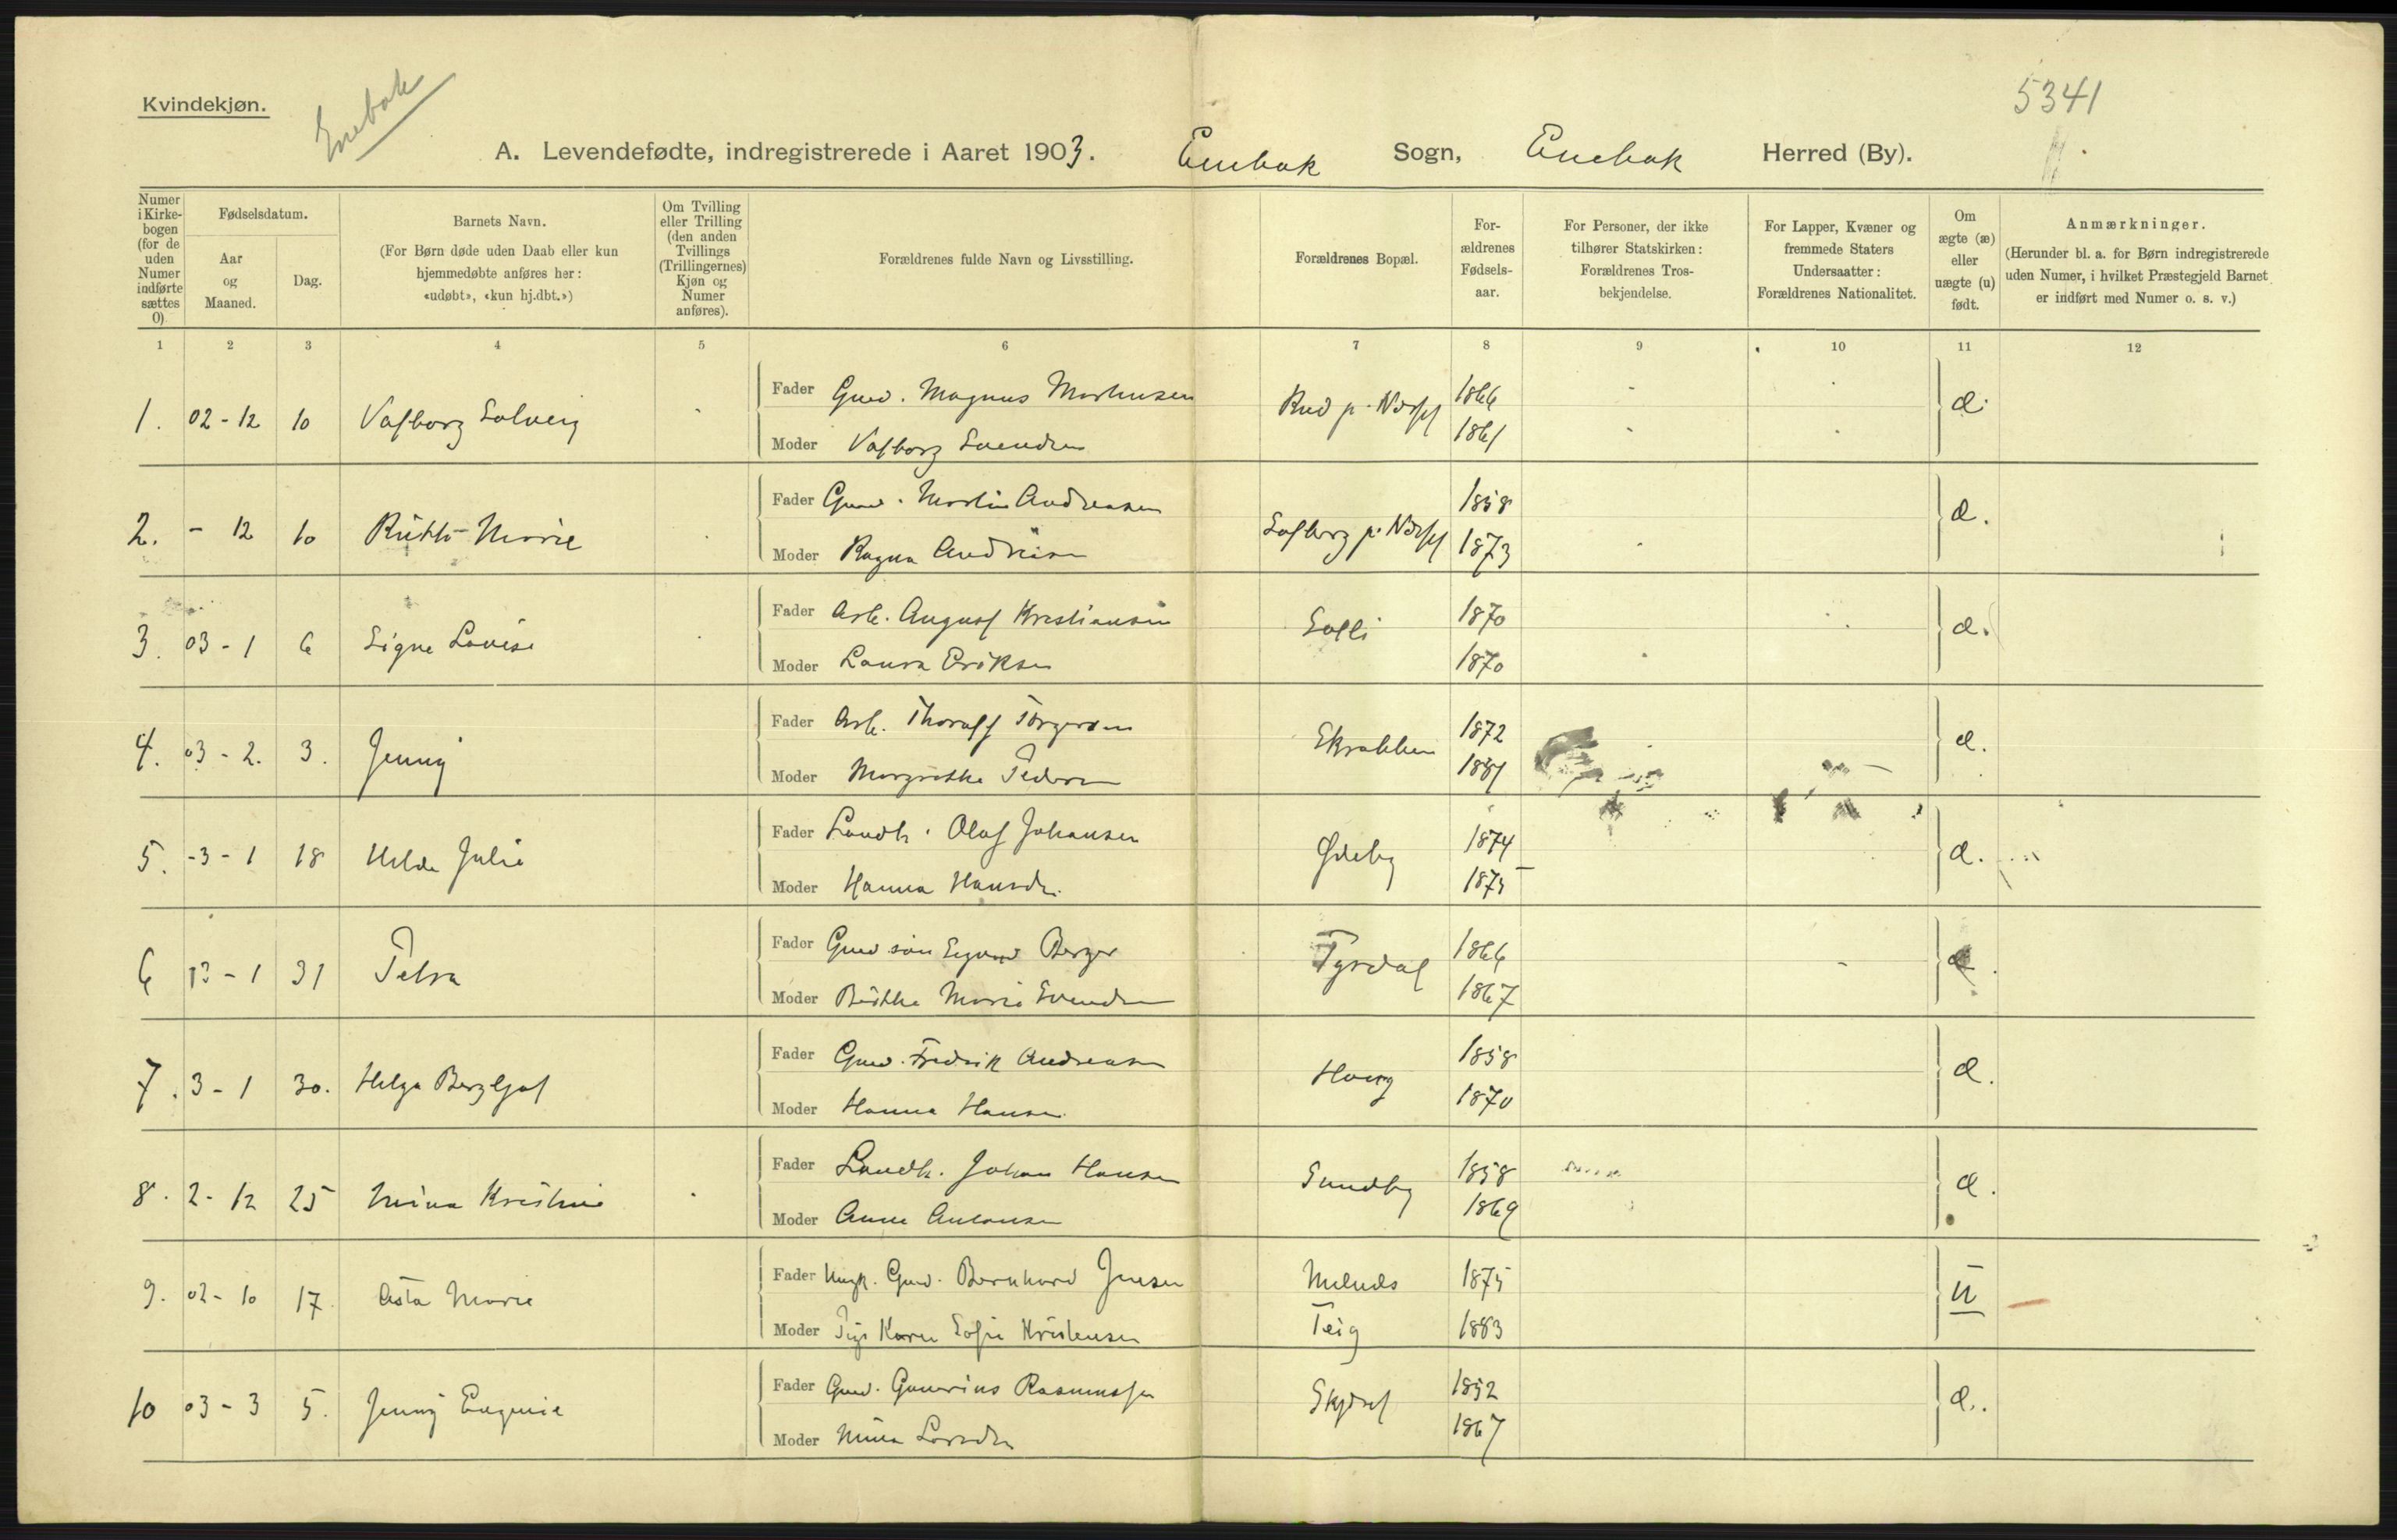 Kvindekjøn.
Enebak
5341
A. Levendefødte, indregistrerede i Aaret 1903. Enebak Sogn, Enebak Herred (By).
Numer i Kirkebogen (for de uden Numer indførte sættes 0)
Fødselsdatum.
Aar og Maaned.
Dag.
Barnets Navn.
(For Børn døde uden Daab eller kun hjemmedøbte anføres her: «udøbt», «kun hj.dbt.»)
Om Tvilling eller Trilling (den anden Tvillings (Trillingernes) Kjøn og Numer anføres).
Forældrenes fulde Navn og Livsstilling.
Forældrenes Bopæl.
Forældrenes Fødselsaar.
For Personer, der ikke tilhører Statskirken: Forældrenes Trosbekjendelse.
For Lapper, Kvæner og fremmede Staters Undersaatter: Forældrenes Nationalitet.
Om ægte (æ) eller uægte (u) født.
Anmærkninger.
(Herunder bl. a. for Børn indregistrerede uden Numer, i hvilket Præstegjeld Barnet er indført med Numer o. s. v.)
1 2 3 4 5 6 7 8 9 10 11 12
1. 02-12 10 Valborg Solveig Fader Gmd. Magnus Markusen Rud p. 1866 æ.
Moder Valborg Svendsen 1861
2. - 12 10 Ruth Marie Fader Gmd. Martin Andreasen Solberg p. 1858 æ.
Moder Ragna Andreasen 1873
3. 03-1 6 Signe Lovise Fader Arb. August Kristiansen Solli 1870 æ.
Moder Laura Eriksen 1870
4. 03-2. 3. Jenny Fader Arb. Thoralf Torgersen Ekrabben 1872 æ.
Moder Margrethe Pedersen 1881
5. -3-1 18 Helda Julie Fader Landh. Olaf Johansen Ødeby 1874 æ.
Moder Hanna Hansdr. 1875
6 03-1 31 Petra Fader Gmd søn Berger 1866 æ.
Moder Marie Svendsen 1867
7. 3-1 30. Helga Bergljot Fader Gmd. Fredrik Andreasen Haug 1858 æ.
Moder Hanna Hansen 1870
8. 2-12 25 Mina Kristine Fader Landh. Johan Hansen Sundby 1858 æ.
Moder Anne Antonsen 1869
9. 02-10 17. Asta Marie Fader Ungk. Gmd. Bernhard Jensen 1875 u
Moder Pige Karen Sofie Kristensen Teig 1883
10 03-3 5. Jenny Eugenie Fader Gmd. Gunerius Rasmussen 1852 æ.
Moder Mina Larsdr. 1867